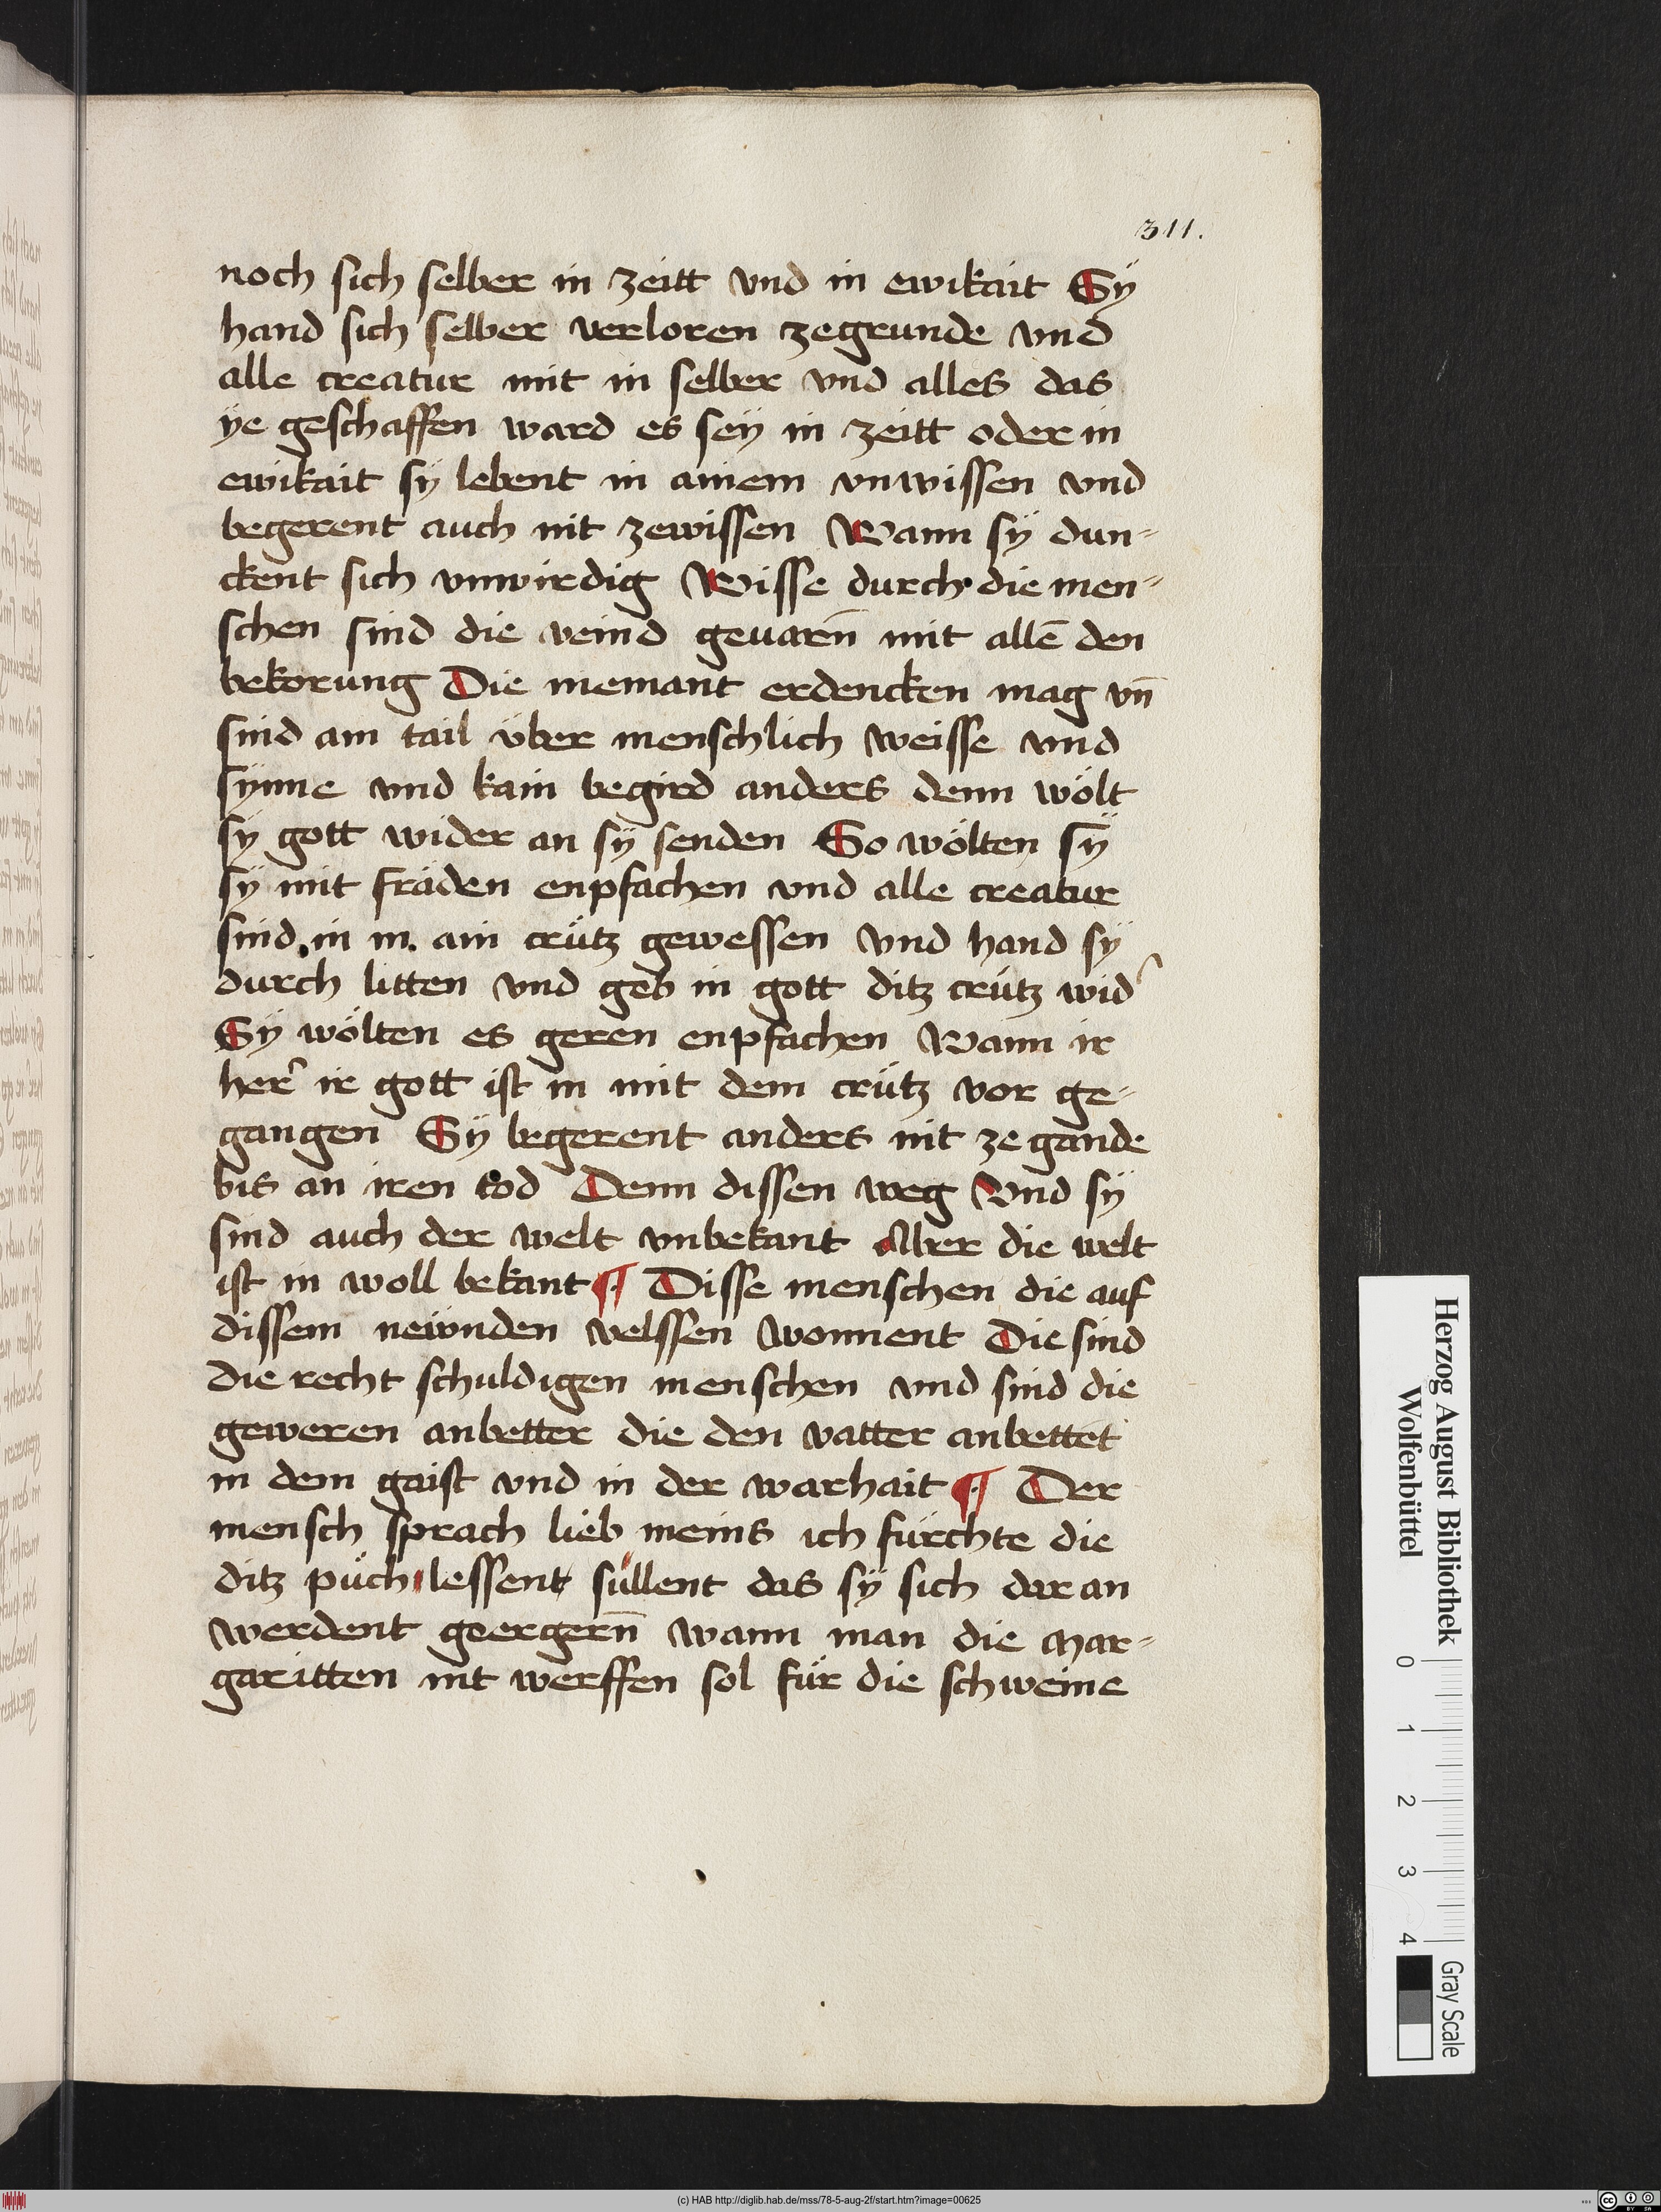 311.
noch sich selber in zeitt vnd in ewikait Sÿ
hand sich selber verloren zegrunde vnd
alle creatur mit in selber vnd alles das
ÿe geschaffen ward es seÿ in zeitt oder in
ewikait sÿ lebent in ainem vnwissen vnd
begerent auch nit zewissen Wann sÿ dun⸗
ckent sich vnwirdig Wisse durch die men⸗
schen sind die veind geuarn̄ mit allē den
bekorung Die niemant erdencken mag vn̄
sind ain tail über menschlich weisse vnd
sÿnne vnd kain begird anders denn wölt
sÿ gott wider an sÿ senden So wölten sÿ
sÿ mit fräden enpfachen vnd alle creatur
sind in in. ain crütz gewessen vnd hand sÿ
durch litten vnd geb in gott ditz crütz wid̾
Sÿ wölten es geren enpfachen Wann ir
her̾ ir gott ist in mit dem crütz vor ge⸗
gangen Sÿ begerent anders nit ze gande
bis an iren tod Denn dissen weg Vnd sÿ
sind auch der welt vnbekant Aber die welt
ist in woll bekant ¶ Disse menschen die auf
dissem newnden velssen wonnent Die sind
die recht schuldigen menschen vnd sind die
geweren anbetter die den vatter anbettēt
in dem gaist vnd in der warhait ¶ Der
mensch sprach lieb meins ich fürchte die
ditz püch lessent süllent das sÿ sich dar an
werdent geergern̄ wann man die mar⸗
garitten nit werffen sol für die schweine
Herzog August Bibliothek
Wolfenbüttel
0 1 2 3 4
Gray Scale
(c) HAB http://diglib.hab.de/mss/78-5-aug-2f/start.htm?image=00625